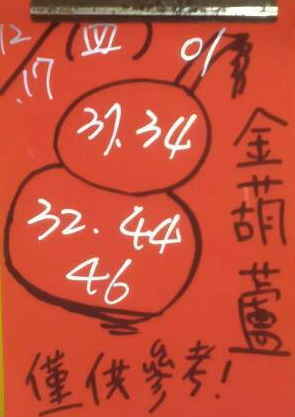 12/17
(四)
01
37.34
32.44
46
金葫蘆
僅供參考!